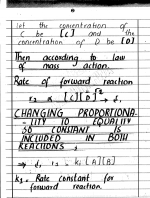 let the concentration of
C be [C] and the
concentration of D be [D]
Then according to law
of mass action.
Rate of forward reaction
CHANGING PROPORTIONA-
- LITY TO EQUALITY
SO CONSTANT IS
INCLUDED IN BOTH
REACTIONS
k₁ [A][B]
k₁ = Rate constant for
forward reaction.